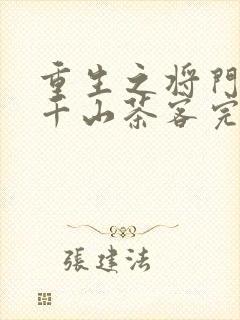 重生之将門
千山茶客完
張建法